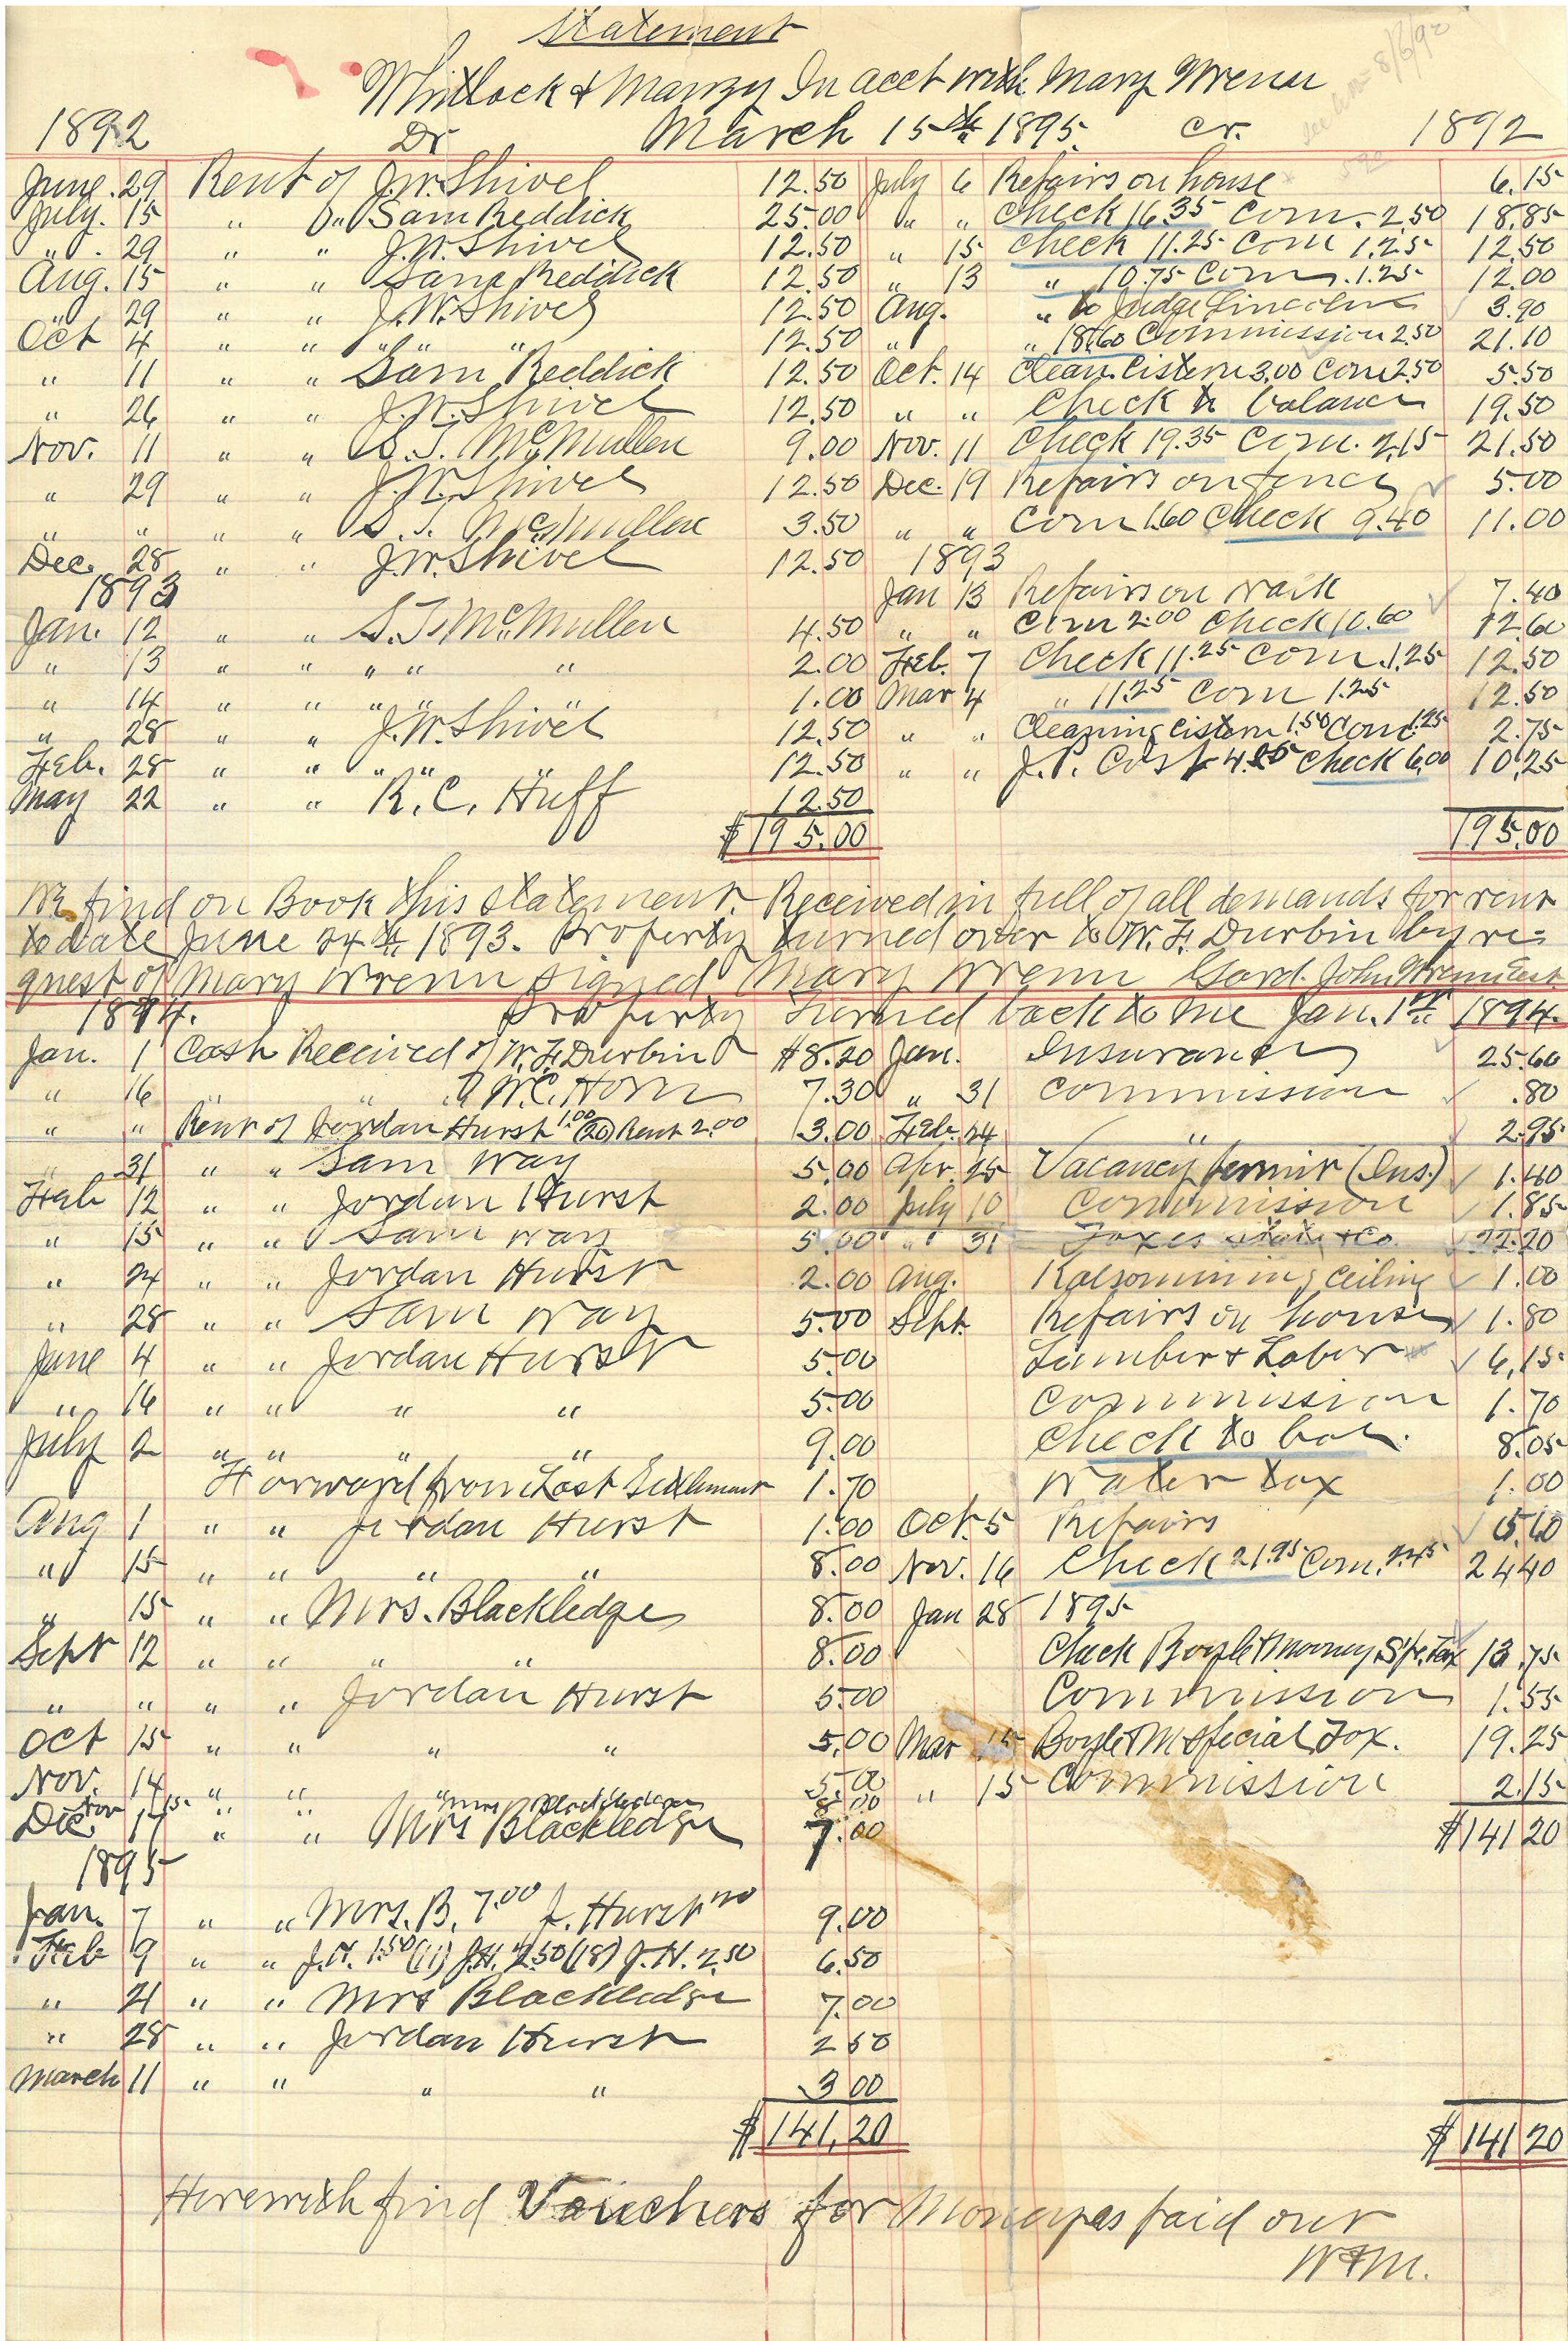 Statement
Whitlock & Manzy In acct with Mary Wrenn
1892 Dr March 15th 1895. Cr. 1892
June. 29 Rent of J.W. Shivel 12.50 July 6 Repairs on house 6.15
July. 15 " " Sam Reddick 25.00 " " Check 16.35 Com. 2.50 18.85
" . 29 " " J.W. Shivel 12.50 " 15 Check 11.25 Com 1.25 12.50
Aug. 15 " " Sam Reddick 12.50 " 13 " 10.75 Com. 1.25 12.00
" 29 " " J.W. Shivel 12.50 Aug. " to Judge Lincoln 3.90
Oct 4 " " " " " 12.50 " " 18.60 Commission 2.50 21.10
" 11 " " Sam Reddick 12.50 Oct. 14 Clean. Cistern 3.00 Com 2.50 5.50
" 26 " " J.W. Shivel 12.50 " " Check to balance 19.50
Nov. 11 " " S.T. McMullen 9.00 Nov. 11 Check 19.35 Com. 2.15 21.50
" 29 " " J.W. Shivel 12.50 Dec. 19 Repairs on fence 5.00
" " " " S.T. McMullen 3.50 " " Com 1.60 Check 9.40 11.00
Dec. 28 " " J.W. Shivel 12.50 1893
1893 Jan 13 Repairs on walk 7.40
Jan. 12 " " S.T. McMullen 4.50 " " Com 2.00 Check 10.60 12.60
" 13 " " " " " 2.00 Feb. 7 Check 11.25 Com. 1.25 12.50
" 14 " " " " " 1.00 Mar 4 " 11.25 Com 1.25 12.50
" 28 " " J.W. Shivel 12.50 " " Cleaning Cistern 1.50 Com 1.25 2.75
Feb. 28 " " " " " 12.50 " " J.P. Cost 4.25 Check 6.00 10.25
May 22 " " R.C. Huff 12.50
$195.00 195.00
We find on Book this statement. Received in full of all demands for rent
to date June 24th 1893. Property turned over to W.F. Durbin by re=
quest of Mary Wrenn signed Mary Wrenn Gard. John Wrenn Est
1894. Property turned back to me Jan. 1st 1894.
Jan. 1 Cash Received of W.F. Durbin $8.20 Jan. Insurance 25.60
" 16 " " W.C. Horn 7.30 " 31 Commission .80
" " Rent of Jordan Hurst 1.00 (20) Rent 2.00 3.00 Feb. 24 " 2.95
" 31 " " Sam Way 5.00 Apr. 25 Vacancy permit (Ins.) 1.40
Feb 12 " " Jordan Hurst 2.00 July 10 Commission 1.85
" 15 " " Sam Way 5.00 " 31 Taxes state & Co. 22.20
" 24 " " Jordan Hurst 2.00 Aug. Kalsomining ceiling 1.00
" 28 " " Sam Way 5.00 Sept. Repairs on house 1.80
June 4 " " Jordan Hurst 5.00 Lumber & Labor 6.15
" 16 " " " " 5.00 Commission 1.70
July 2 " " " " 9.00 Check to bal. 8.05
Forward from Last Settlement 1.70 Water tax 1.00
Aug 1 " " Jordan Hurst 1.00 Oct. 5 Repairs 5.60
" 15 " " " " 8.00 Nov. 16 Check 21.95 Com. 2.45 24.40
" 15 " " Mrs. Blackledge 8.00 Jan 28 1895
Sept 12 " " " " 8.00 Check Boyle & Mooney Spe. Tax 13.75
" " " " Jordan Hurst 5.00 Commission 1.55
Oct 15 " " " " 5.00 Mar 15 Boyle & M Special Tax. 19.25
Nov. 14 " " " 5.00 " 15 Commission 2.15
Nov 15 Mrs Blackledge 8.00
Dec. 17 " " Mrs Blackledge 7.00 $141.20
1895
Jan. 7 " " Mrs. B. 7.00 J. Hurst 9.00
Feb 9 " " J.H. 1.50 (11) J.H. 2.50 (18) J.H. 2.50 6.50
" 21 " " Mrs Blackledge 7.00
" 28 " " Jordan Hurst 2 50
March 11 " " " " 3 00
$141.20 $141 20
Herewith find Vouchers for Moneyes paid out
W&M.